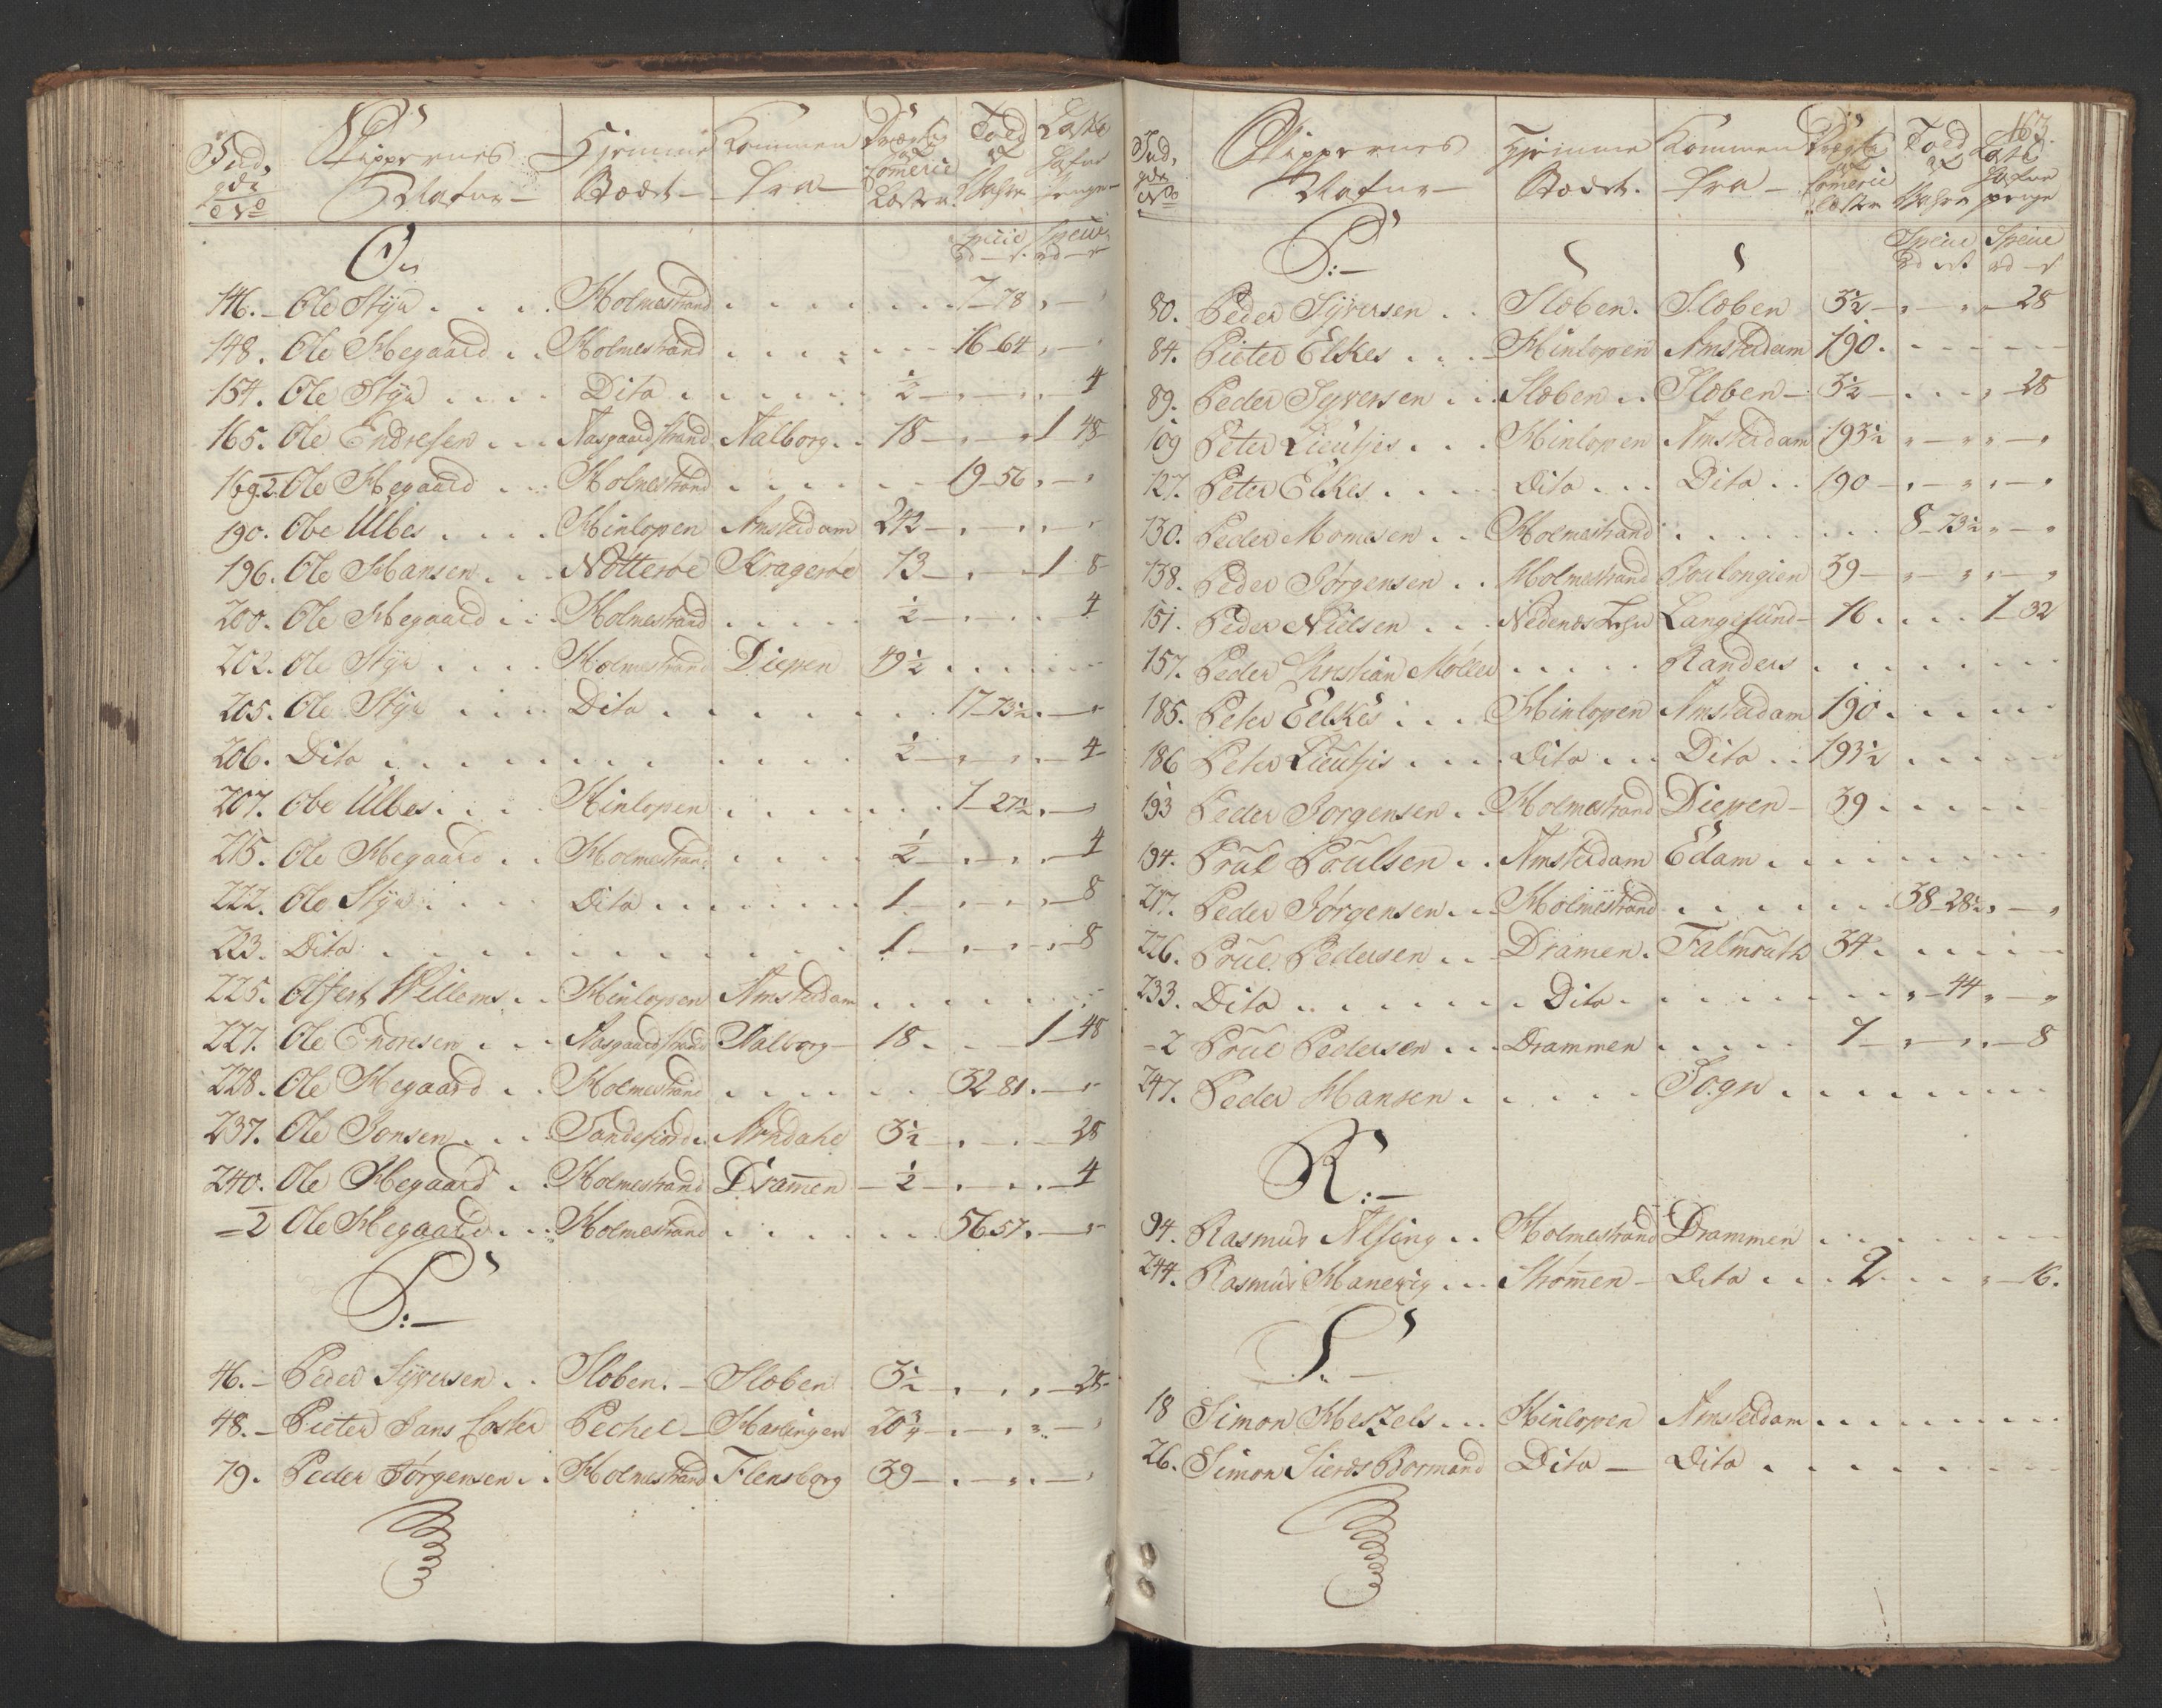 Ind, Skippernes Hjemme Kommen Drægtig Told Laste
gds Nafne Stædt fra Comerce af Hafne
No Læster Vahre penge
Specie Specie
rd rd
O
146. Ole Styr Holmestrand 7 78
148. Ole Hegaard Holmestrand 16 64
154. Ole Styr Dito ½ 4
165. Ole Endresen Aasgaardstrand Aalborg 18 1 48
169.2 Ole Hegaard Holmestrand 19 56
190. Obe Ulbes Hinlopen Amsterdam 242
196. Ole Hansen Nøtterøe Kragerøe 13 1 8
200. Ole Hegaard Holmestrand ½ 4
202. Ole Styr Holmestrand Diepen 49½
205. Ole Styr Dito 17 73½
206. Dito ½ 4
207. Obe Ulbes Hinlopen 1 27½
215. Ole Hegaard Holmestrand ½ 4
222. Ole Styr Dito 1 8
223. Dito 1 8
225. Olfert Willems Hinlopen Amsterdam
227. Ole Endresen Aasgaardstrand Aalborg 18 1 48
228. Ole Hegaard Holmestrand 32 81
237. Ole Jonsen Sandefiord Arndahl 3½ 28
240. Ole Hegaard Holmestrand Dramen ½ 4
-2 Ole Hegaard Holmestrand 56 57
P:
46. Peder Syversen Sloben Sloben 3½ 28
48. Pieter Jans Coster Pechel Harlingen 20¾
79. Peder Jørgensen Holmestrand Flensborg 39
163.
Ind, Skippernes Hjemme Kommen Drægtig Told Laste
gds Nafne Stædt. fra Comerce af Hafne
No Læster Vahre penge
Specie Specie
rd rd
P:
80. Peder Syversen Sloben. Sloben 3½ 28
84. Pieter Elkes Hinlopen Amsterdam 190.
89. Peder Syversen Sloben Sloben 3½ 28
109 Peter Lieutjes Hinlopen Amsterdam 193½
127. Peter Elkes Dito Dito 190
130. Peder Momesen Holmestrand 8 73½
138. Peder Jørgensen Holmestrand Boulongien 39
151. Peder Nielsen Nedenæs Lehn Langesund 16 1 32
157. Peder Kristian Møller Randers
185. Peter Eelkes Hinlopen Amsterdam 190
186 Peter Lieutjis Dito Dito 193½
193 Peder Jorgensen Holmestrand Diepen 39
194. Poul Poulsen Amsterdam Edam
217. Peder Jørgensen Holmestrand 38 28½
226. Poul Pedersen Dramen. Falmouth 34
233. Dito Dito 44
-2 Poul Pedersen Drammen 1 8
247. Peder Hansen Sogn
R:
94. Rasmus Alsing Holmestrand Drammen
244. Rasmus Hanevig Strømen Dito 2 16.
S.
18 Simon Hessels Hinlopen Amsterdam
26. Simon Sierds Bormand Dito Dito